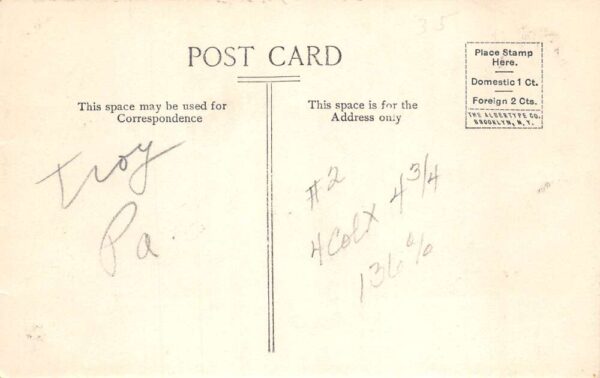 35
POST CARD
Place Stamp
Here.
Domestic 1 Ct.
Foreign 2 Cts.
THE ALBERTYPE CO.
BROOKLYN, N. Y.
This space may be used for
Correspondence
This space is for the
Address only
Troy
Pa.
#2
4 Col X 4 3/4
136%